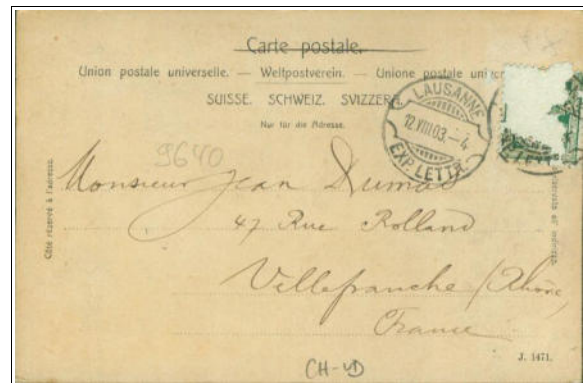 Carte postale.
Union postale universelle. — Weltpostverein. — Unione postale
SUISSE. SCHWEIZ. SVIZZERA
Nur für die Adresse.
LAUSANNE
12.VIII.03.–4
EXP. LETTR.
9640
Côté réservé à l'adresse.
Monsieur Jean Dumas
47 Rue Rolland
Villefranche (Rhône)
France
J. 1471.
CH-VD